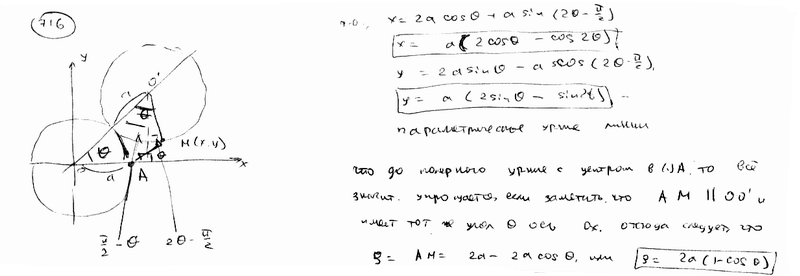 716
y
O'
a
θ
M(x,y)
θ
θ
x
a
A
π/2 - θ
2θ - π/2
т.о., x = 2a cosθ + a sin (2θ - π/2)
x = a(2cosθ - cos2θ)
y = 2a sinθ - a cos(2θ - π/2),
y = a (2sinθ - sin2t)
параметрическое ур-ние линии
что до полярного ур-ние с центром в (.)A, то всё
значит. упрощается, если заметить, что AM || OO' и
имеет тот же угол θ ось Ox, откуда следует что
ρ = AM = 2a - 2a cosθ, или ρ = 2a(1 - cosθ)